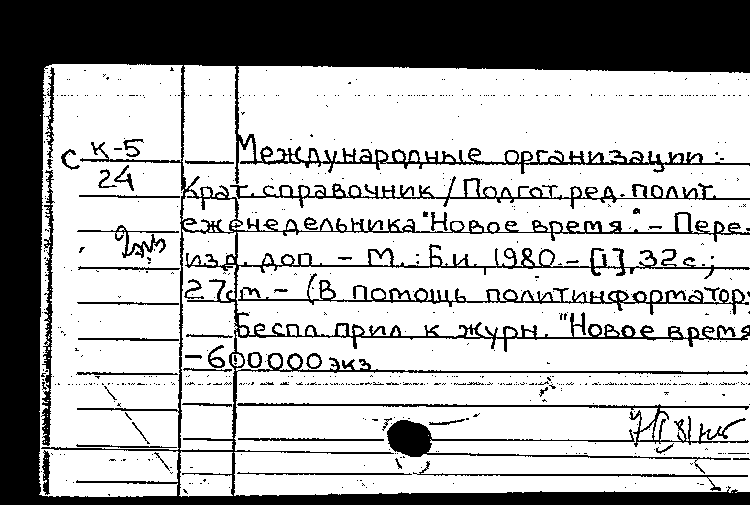 С К-5
24
2экз
Международные организации :
Крат. справочник / Подгот. ред. полит.
еженедельника "Новое время". - Пере-
изд. доп. - М. : Б.и., 1980. - [1], 32 с.;
27 см. - (В помощь политинформатору
Беспл. прил. к журн. "Новое время
- 600000 экз